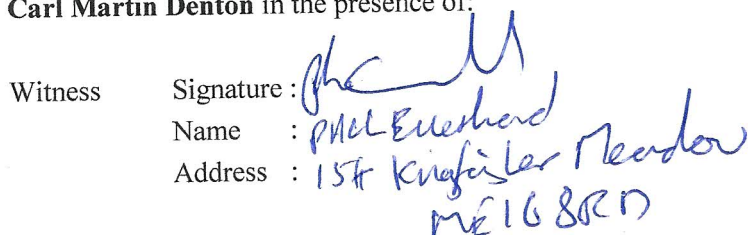 Carl Martin Denton in the presence of:
Witness Signature :
Name :
Address : Kingfisher Meadow
ME16 8RD